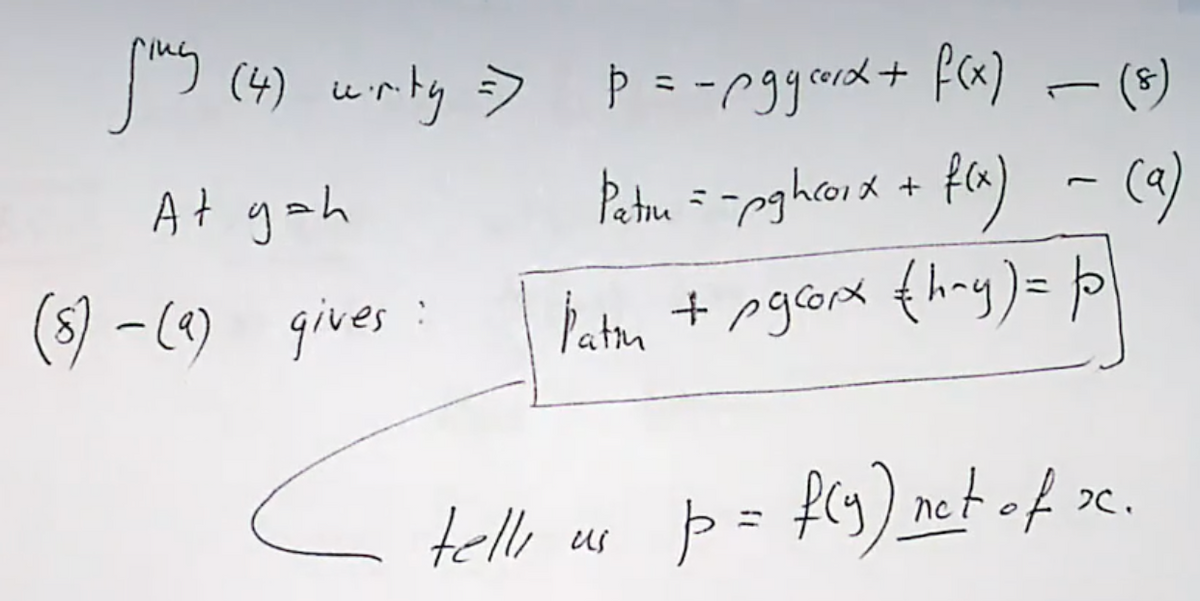 ∫ing (4) w.r.t y ⇒ p = -ρgycosα + f(x) — (8)
At y=h Patm = -ρghcosα + f(x) - (9)
(8) - (9) gives : Patm + ρgcosα (h-y) = p
tells us p = f(y) not of x.